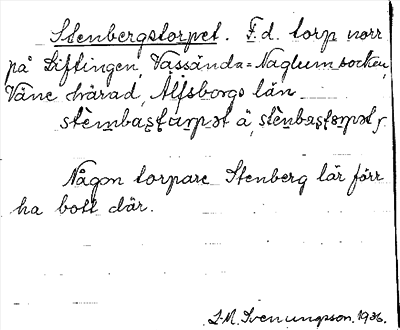 Stenbergstorpet. F.d. torp norr
på Liftingen, Vassända=Naglum socken,
Väne härad, Älfsborgs län
stèmbastɑrpət ä, stènbastɵrpət,
Någon torpare Stenberg lär förr
ha bott där.
L-M. Svenungsson. 1936.